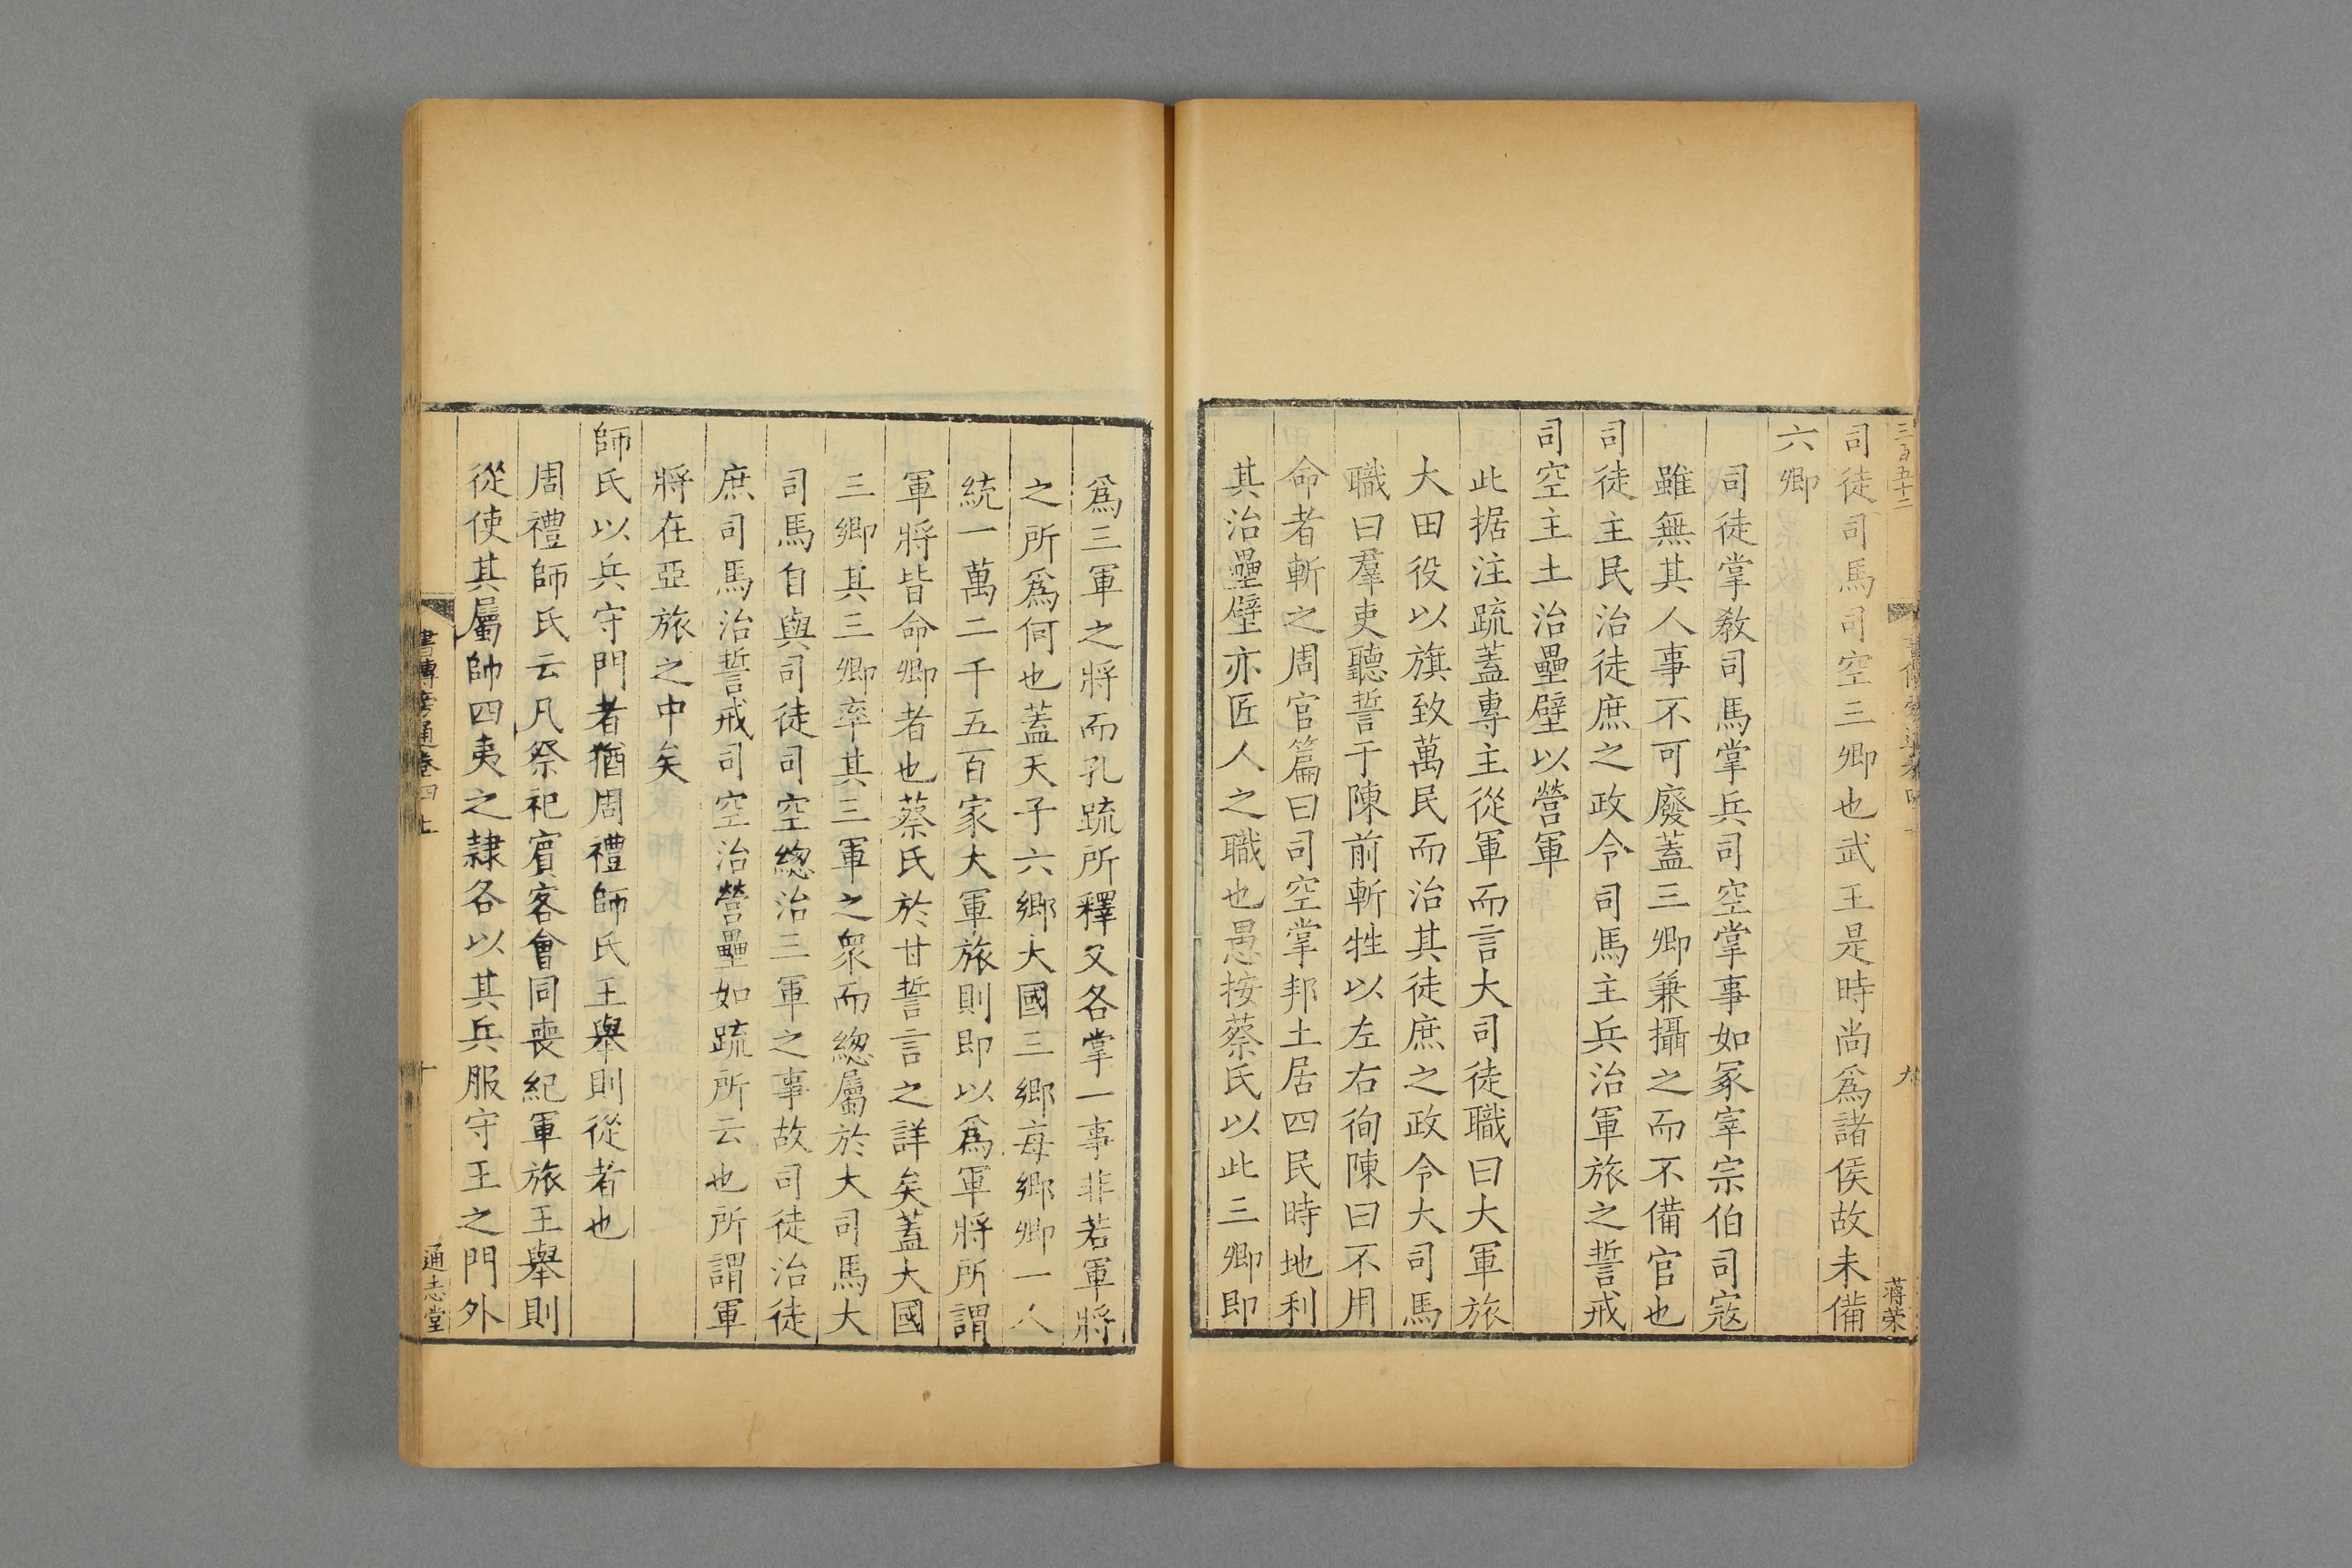 三百五十二
九
蒋荣
司徒司馬司空三卿也武王是時尚爲諸侯故未備
六卿
司徒掌教司馬掌兵司空掌事如冢宰宗伯司寇
雖無其人事不可廢蓋三卿兼攝之而不備官也
司徒主民治徒庶之政令司馬主兵治軍旅之誓戒
司空主土治壘壁以營軍
此据注疏蓋專主從軍而言大司徒職曰大軍旅
大田役以旗致萬民而治其徒庶之政令大司馬
職曰羣吏聽誓于陳前斬牲以左右徇陳曰不用
命者斬之周官篇曰司空掌邦土居四民時地利
其治壘壁亦匠人之職也愚按蔡氏以此三卿即
爲三軍之將而孔疏所釋又各掌一事非若軍將
之所爲何也蓋天子六鄉大國三鄉每鄉卿一人
統一萬二千五百家大軍旅則即以爲軍將所謂
軍將皆命卿者也蔡氏於甘誓言之詳矣蓋大國
三卿其三卿率其三軍之衆而緫屬於大司馬大
司馬自與司徒司空緫治三軍之事故司徒治徒
庶司馬治誓戒司空治營壘如疏所云也所謂軍
將在亞旅之中矣
師氏以兵守門者猶周禮師氏王舉則從者也
周禮師氏云凡祭祀賓客會同喪紀軍旅王舉則
從使其屬帥四夷之隷各以其兵服守王之門外
書傳旁通卷四上
十
通志堂